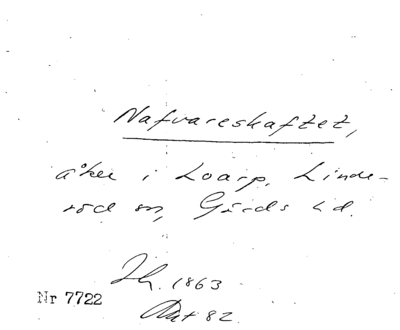 Nafvareskaftet,
åker i Loarp, Linde-
röd sn, Gärds hd.
Jh. 1863
Nr 7722
Akt 82